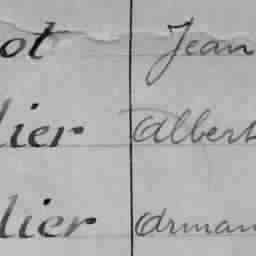 ot Jean
lier Albert
lier Arman